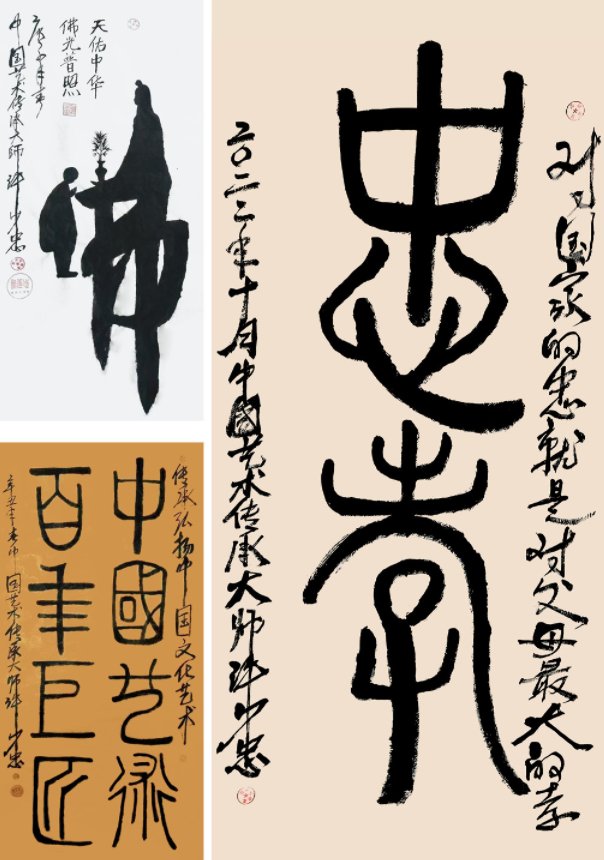 天佑中华
佛光普照
庚子年春
中国艺术传承大师
对国家的忠就是对父母最大的孝
忠孝
二〇二二年十月中国艺术传承大师
传承弘扬中国文化艺术
中國艺術
百年巨匠
中国艺术传承大师